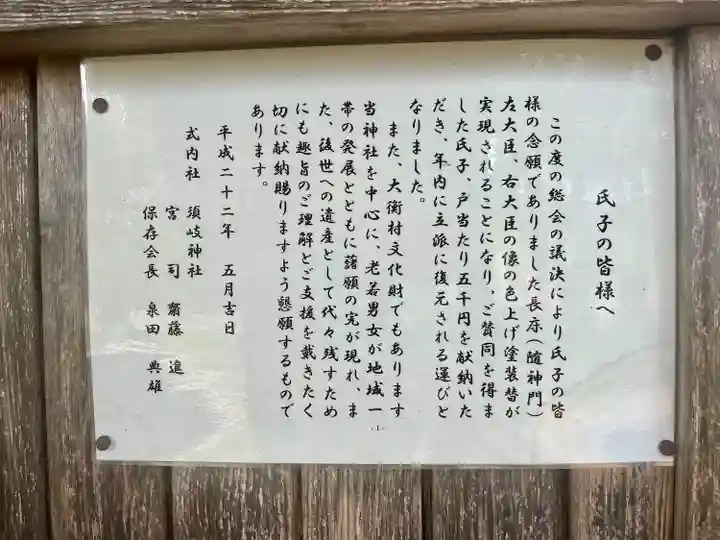 氏子の皆様へ
この度の総会の議決により氏子の皆
様の念願でありました長床(随神門)
左大臣、右大臣の像の色上げ塗装替が
実現されることになり、ご賛同を得ま
した氏子、戸当たり五千円を献納いた
だき、年内に立派に復元される運びと
なりました。
また、大衡村文化財でもあります
当神社を中心に、老若男女が地域一
帯の発展とともに諸願の完が現れ、ま
た、後世への遺産として代々残すため
にも趣旨のご理解とご支援を戴きたく
切に献納賜りますよう懇願するもので
あります。
平成二十二年 五月吉日
式内社 須岐神社
宮司 齋藤 進
保存会長 泉田 典雄
-1-